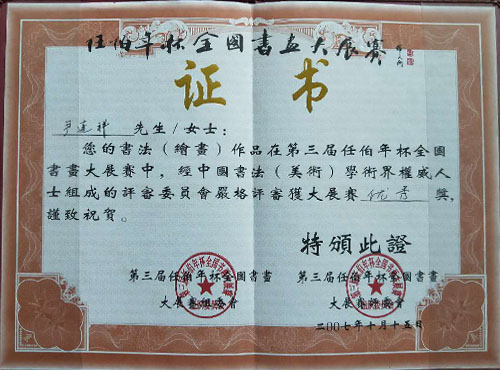 任伯年杯全國书画大展赛
证书
尹连祥 先生/女士：
您的書法（繪畫）作品在第三届任伯年杯全國
書畫大展賽中，經中國書法（美術）學術界權威人
士組成的評審委員會嚴格評審獲大展賽 优秀 獎，
謹致祝賀。
特頒此證
第三届任伯年杯全國書畫 第三届任伯年杯全國書畫
大展賽組委會 大展賽評委會
二00七年十月十五日